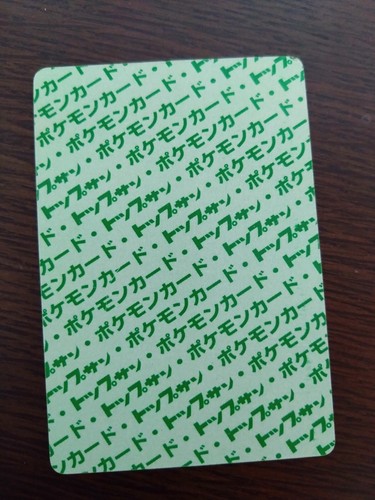 ポケモンカード・トップ
ポケモンカード・トップサン
ポケモンカード・トップサン・
・ポケモンカード・トップサン・
・ポケモンカード・トップサン・ポ
サン・ポケモンカード・トップサン・ポケ
トップサン・ポケモンカード・トップサン・ポケモン
・トップサン・ポケモンカード・トップサン・ポケモン
ード・トップサン・ポケモンカード・トップサン・ポケモンカ
カード・トップサン・ポケモンカード・トップサン
ンカード・トップサン・ポケモンカード・トップサン
モンカード・トップサン・ポケモンカード・
カード・トップサン・ポケモンカ
カード・トップサン・ポケ
カード・トップサン・